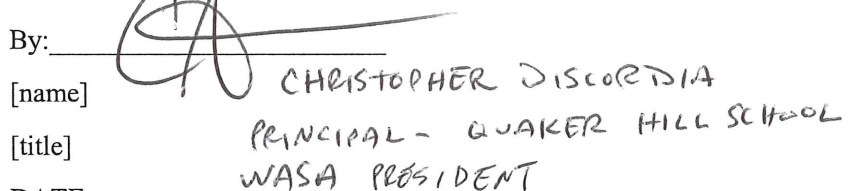 By:
[name] CHRISTOPHER DISCORDIA
[title] PRINCIPAL - QUAKER HILL SCHOOL
WASA PRESIDENT
DATE